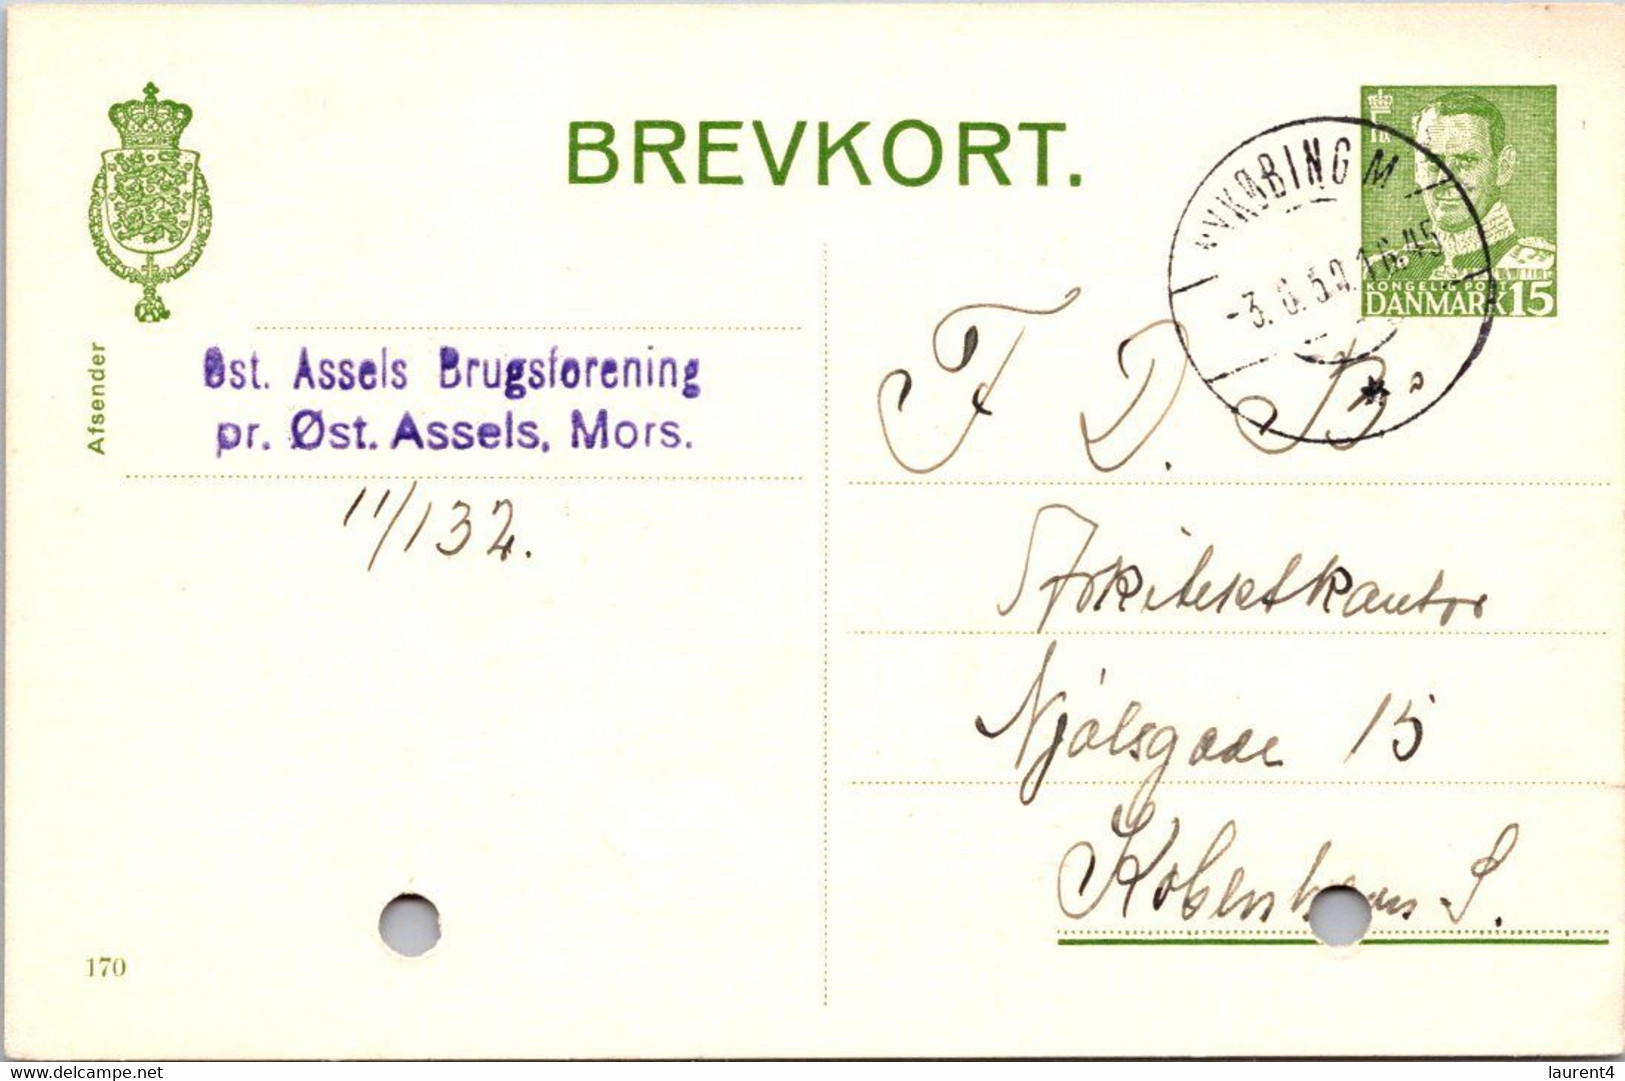 BREVKORT.
NYKØBING M
-3. 8. 50. 16.45
KONGELIG POST
DANMARK 15
Afsender
Øst. Assels Brugsforening
pr. Øst. Assels, Mors.
11/132.
F. D. B.
Arkitektkontor
Njalsgade 15
København S.
170
laurent4